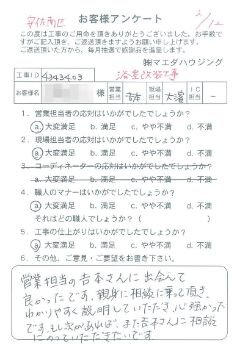 安佐南区
2/12
お客様アンケート
この度は工事のご用命を頂きありがとうございました。お手数で
すがご記入頂き、ご返送頂きますようお願い申し上げます。
ご返送頂いた方から、毎月抽選で粗品を進呈します。
㈱マエダハウジング
工事ID 4343403 浴室改装工事
お客様名 様 営業担当 吉本 現場担当 大濱 IC担当 －
1. 営業担当者の応対はいかがでしたでしょうか？
a. 大変満足 b. 満足 c. やや不満 d. 不満
2. 現場担当者の応対はいかがでしたでしょうか？
a. 大変満足 b. 満足 c. やや不満 d. 不満
3. コーディネーターの応対はいかがでしたでしょうか？
a. 大変満足 b. 満足 c. やや不満 d. 不満
4. 職人のマナーはいかがでしたでしょうか？
a. 大変満足 b. 満足 c. やや不満 d. 不満
それはどの職人でしょうか？（ ）
5. 工事の仕上がりはいかがでしたでしょうか？
a. 大変満足 b. 満足 c. やや不満 d. 不満
6. その他、ご意見・ご要望をお書き下さい。
営業担当の吉本さんに出会えて
良かったです。親身に相談に乗って頂き、
わかりやすく説明していただき、心強かった
です。もし次があれば、また吉本さんに相談
にのっていただきたいです。